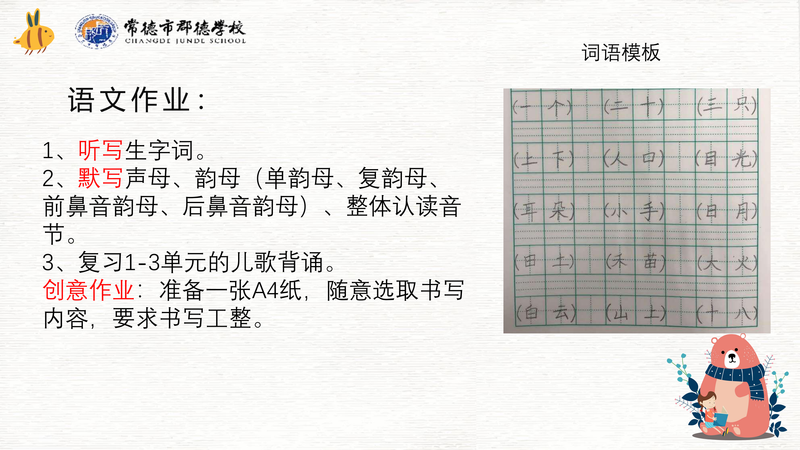 常德市郡德学校
CHANGDE JUNDE SCHOOL
词语模板
语文作业：
1、听写生字词。
2、默写声母、韵母（单韵母、复韵母、
前鼻音韵母、后鼻音韵母）、整体认读音
节。
3、复习1-3单元的儿歌背诵。
创意作业：准备一张A4纸，随意选取书写
内容，要求书写工整。
(一个) (二十) (三只)
(上下) (人口) (目光)
(耳朵) (小手) (日月)
(田土) (禾苗) (大火)
(白云) (山上) (十八)